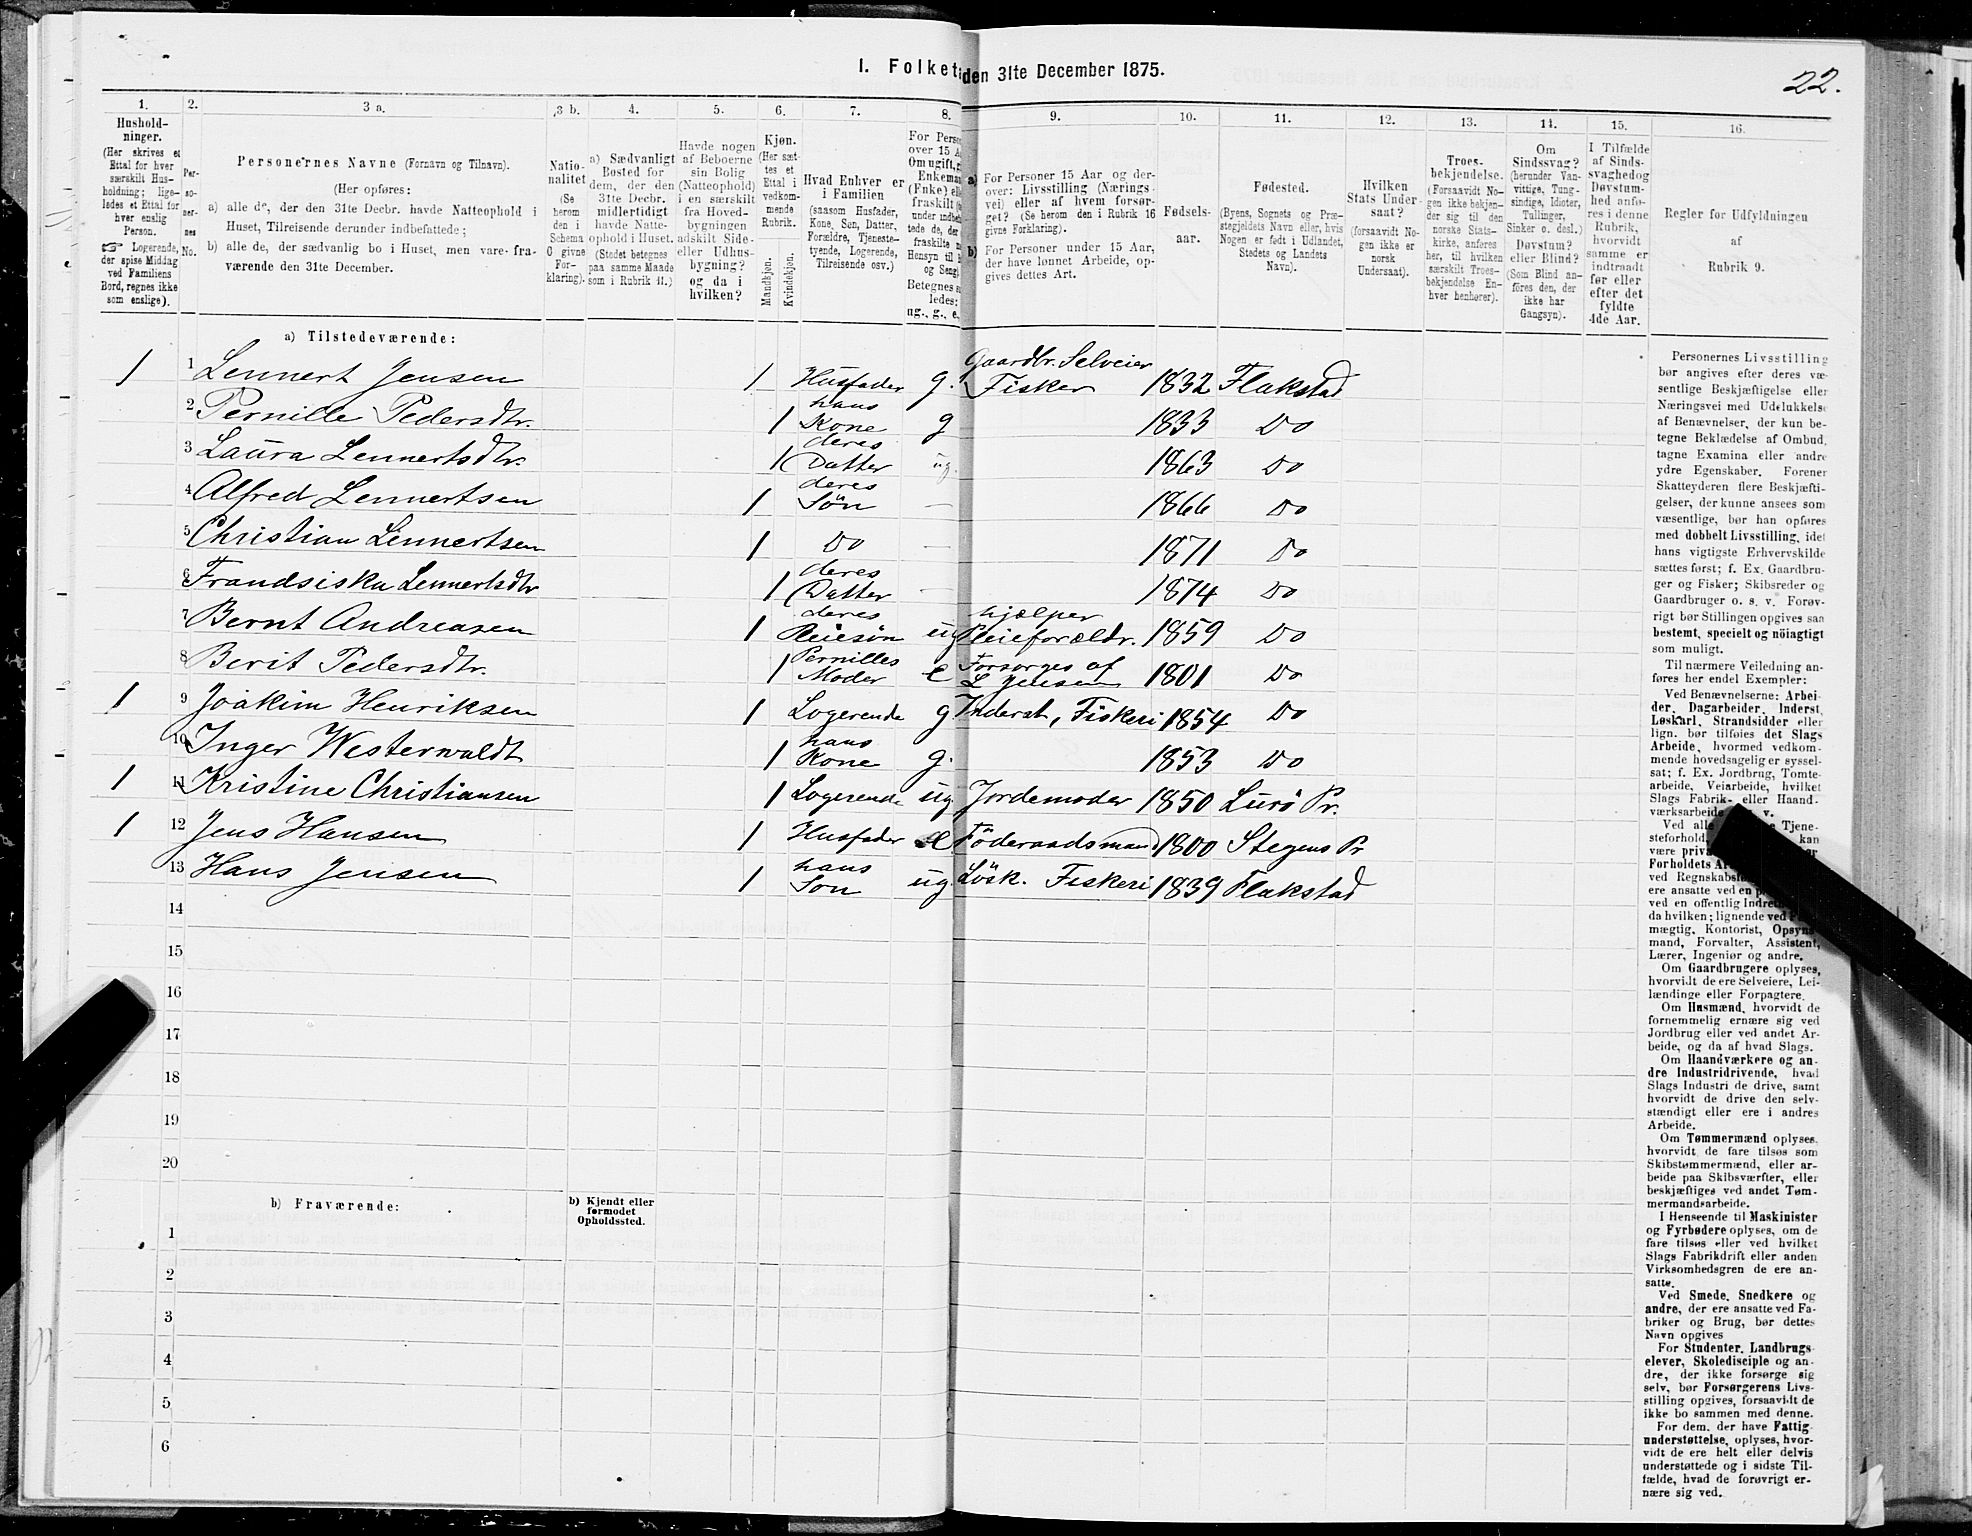 I. Folket
den 31te December 1875.
22.
1. 2. 3 a. 3 b. 4. 5. 6. 7. 8. 9. 10. 11. 12. 13. 14. 15. 16.
Hushold-
ninger.
(Her skrives et
Ettal for hver
særskilt Hus-
holdning; lige-
ledes et Ettal for
hver enslig
Person.
☞ Logerende,
der spise Middag
ved Familiens
Bord, regnes ikke
som enslige).
Per-
so-
ner-
nes
No.
Personernes Navne (Fornavn og Tilnavn).
(Her opføres:
a) alle de, der den 31te Decbr. havde Natteophold i
Huset, Tilreisende derunder indbefattede;
b) alle de, der sædvanlig bo i Huset, men vare fra-
værende den 31te December.
Natio-
nalitet
(Se
herom
den i
Schema
0 givne
For-
klaring).
a) Sædvanligt
Bosted for
dem, der den
31te Decbr.
midlertidigt
havde Natte-
ophold i Huset.
(Stedet betegnes
paa samme Maade
som i Rubrik 11.)
Havde nogen
af Beboerne
sin Bolig
(Natteophold)
i en særskilt
fra Hoved-
bygningen
adskilt Side-
eller Udhus-
bygning?
og da i
hvilken?
Kjøn.
(Her sæt-
tes et
Ettal i
vedkom-
mende
Rubrik.
Mandkjøn.
Kvindekjøn.
Hvad Enhver er
i Familien
(saasom Husfader,
Kone, Søn, Datter,
Forældre, Tjeneste-
tyende, Logerende,
Tilreisende osv.)
For Perso
over 15 A
Om ugift, g
Enkeman
(Enke) el
fraskilt
under indbe
tede de, der
fraskilte
Hensyn til
og Seng
Betegnes
ledes:
ug., g., e.
a) For Personer 15 Aar og der-
over: Livsstilling (Nærings-
vei) eller af hvem forsør-
get? (Se herom den i Rubrik 16
givne Forklaring).
b) For Personer under 15 Aar,
der have lønnet Arbeide, op-
gives dettes Art.
Fødsels-
aar.
Fødested.
(Byens, Sognets og Præ-
stegjeldets Navn eller, hvis
Nogen er født i Udlandet,
Stedets og Landets
Navn).
Hvilken
Stats Under-
saat?
(forsaavidt No-
gen ikke er
norsk
Undersaat).
Troes-
bekjendelse.
(Forsaavidt No-
gen ikke bekjen-
der sig til den
norske Stats-
kirke, anføres
her, til hvilken
særskilt Troes-
bekjendelse En-
hver henhører).
Om
Sindssvag?
(herunder Van-
vittige, Tung-
sindige, Idioter,
Tullinger,
Sinker o. desl.)
Døvstum?
eller Blind?
(Som Blind an-
føres den, der
ikke har
Gangsyn).
I Tilfælde
af Sinds-
svaghed og
Døvstum-
hed anfø-
res i denne
Rubrik,
hvorvidt
samme er
indtraadt
før eller
efter det
fyldte
4de Aar.
Regler for Udfyldningen
af
Rubrik 9.
a) Tilstedeværende:
1 1 Lennert Jensen 1 Husfader g. Gaardbr. Selveier Fisker 1832 Flakstad
2 Pernille Pedersdtr. 1 hans Kone g 1833 Do
3 Laura Lennertsdtr. 1 deres Datter ug. 1863 Do
4 Alfred Lennertsen 1 deres Søn — 1866 Do
5 Christian Lennertsen 1 Do — 1871 Do
6 Frandsiska Lennertsdtr 1 deres Datter — 1874 Do
7 Bernt Andreasen 1 deres Pleiesøn ug hjælper Pleieforældr. 1859 Do
8 Berit Pedersdtr. 1 Pernilles Moder e Forsørges af L Jensen 1801 Do
1 9 Joakim Henriksen 1 Logerende g Inderst, Fiskeri 1854 Do
10 Inger Westerwaldt 1 hans Kone g. 1853 Do
1 11 Kristine Christiansen 1 Logerende ug. Jordemoder 1850 Lurö Pr.
1 12 Jens Hansen 1 Husfader e Föderaadsmand 1800 Stegens Pr
13 Hans Jensen 1 hans Søn ug. Lösk. Fiskeri 1839 Flakstad
14
15
16
17
18
19
20
b) Fraværende:
b) Kjendt eller
formodet
Opholdssted.
1
2
3
4
5
6
Personernes Livsstilling
bør angives efter deres væ-
sentlige Beskjæftigelse eller
Næringsvei med Udelukkelse
af Benævnelser, der kun be-
tegne Beklædelse af Ombud,
tagne Examina eller andre
ydre Egenskaber. Forener
Skatteyderen flere Beskjæfti-
gelser, der kunne ansees som
væsentlige, bør han opføres
med dobbelt Livsstilling, idet
hans vigtigste Erhvervskilde
sættes først; f. Ex. Gaardbru-
ger og Fisker; Skibsreder og
Gaardbruger o. s. v. Forøv-
rigt bør Stillingen opgives saa
bestemt, specielt og nöiagtigt
som muligt.
Til nærmere Veiledning an-
føres her endel Exempler:
Ved Benævnelserne: Arbei-
der, Dagarbeider, Inderst,
Løskarl, Strandsidder eller
lign. bør tilføies det Slags
Arbeide, hvormed vedkom-
mende hovedsagelig er syssel-
sat; f. Ex. Jordbrug, Tomte-
arbeide, Veiarbeide, hvilket
Slags Fabrik- eller Haand-
værksarbeide v.
Ved alle Tjene-
steforhold, kan
være
Forholdets
ved Regnskabs
ere ansatte ved en
ved en offentlig Indret
da hvilken; lignende ved
mægtig, Kontorist, Opsyns-
mand, Forvalter, Assistent,
Lærer, Ingeniør og andre.
Om Gaardbrugere oplyses,
hvorvidt de ere Selveiere, Lei-
lændinge eller Forpagtere.
Om Husmænd, hvorvidt de
fornemmelig ernære sig ved
Jordbrug eller ved andet Ar-
beide, og da af hvad Slags.
Om Haandværkere og an-
dre Industridrivende, hvad
Slags Industri de drive, samt
hvorvidt de drive den selv-
stændigt eller ere i andres
Arbeide.
Om Tømmermænd oplyses,
hvorvidt de fare tilsøs som
Skibstømmermænd, eller ar-
beide paa Skibsværfter, eller
beskjæftiges ved andet Tøm-
mermandsarbeide.
I Henseende til Maskinister
og Fyrbødere oplyses, om de
fare tilsøs eller ved hvilket
Slags Fabrikdrift eller anden
Virksomhedsgren de ere an-
satte.
Ved Smede, Snedkere og
andre, der ere ansatte ved Fa-
briker og Brug, bør dettes
Navn opgives
For Studenter, Landbrugs-
elever, Skoledisciple og an-
dre, der ikke forsørge sig
selv, bør Forsørgerens Livs-
stilling opgives, forsaavidt de
ikke bo sammen med denne.
For dem, der have Fattig-
understøttelse, oplyses, hvor-
vidt de ere helt eller delvis
understøttede og i sidste Til-
fælde, hvad de forøvrigt er-
nære sig ved.